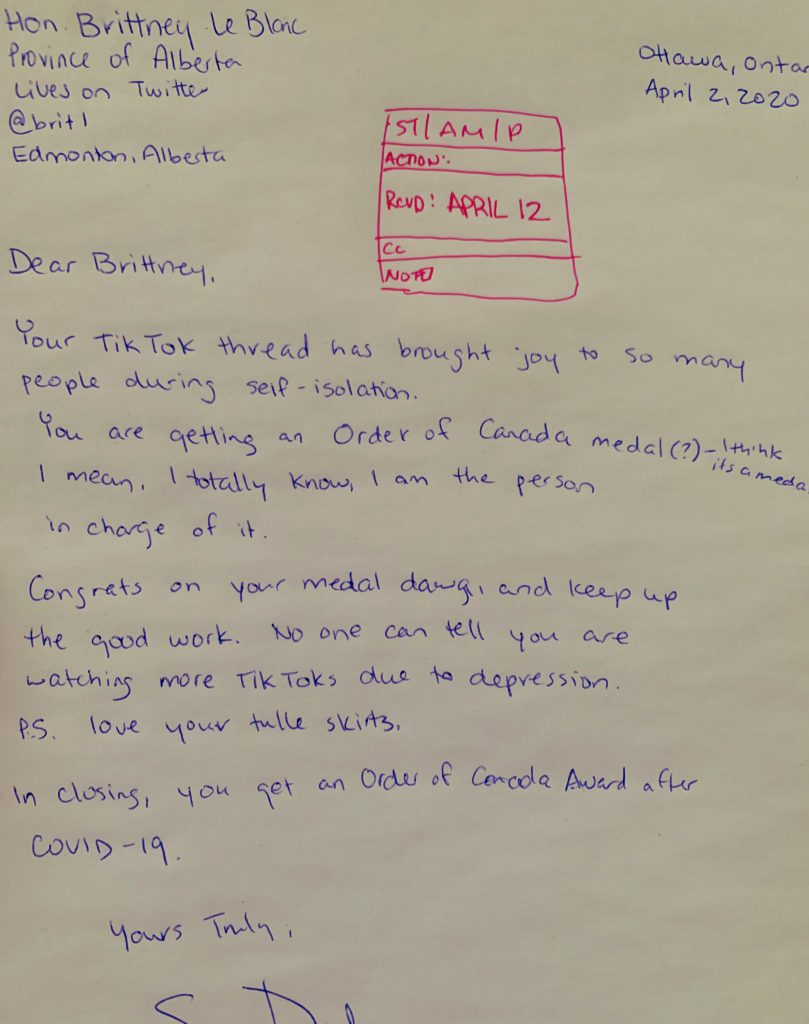 Hon. Brittney Le Blanc
Province of Alberta
Lives on Twitter
@brit1
Edmonton, Alberta
Ottawa, Ontar
April 2, 2020
ST/AM/P
ACTION:
RCVD: APRIL 12
CC
NOTE
Dear Brittney,
Your TikTok thread has brought joy to so many
people during self-isolation.
You are getting an Order of Canada medal(?) - I think
its a meda
I mean, I totally know, I am the person
in charge of it.
Congrats on your medal dawg, and keep up
the good work. No one can tell you are
watching more TikToks due to depression.
P.S. love your tulle skirts.
In closing, you get an Order of Canada Award after
COVID-19.
Yours Truly,